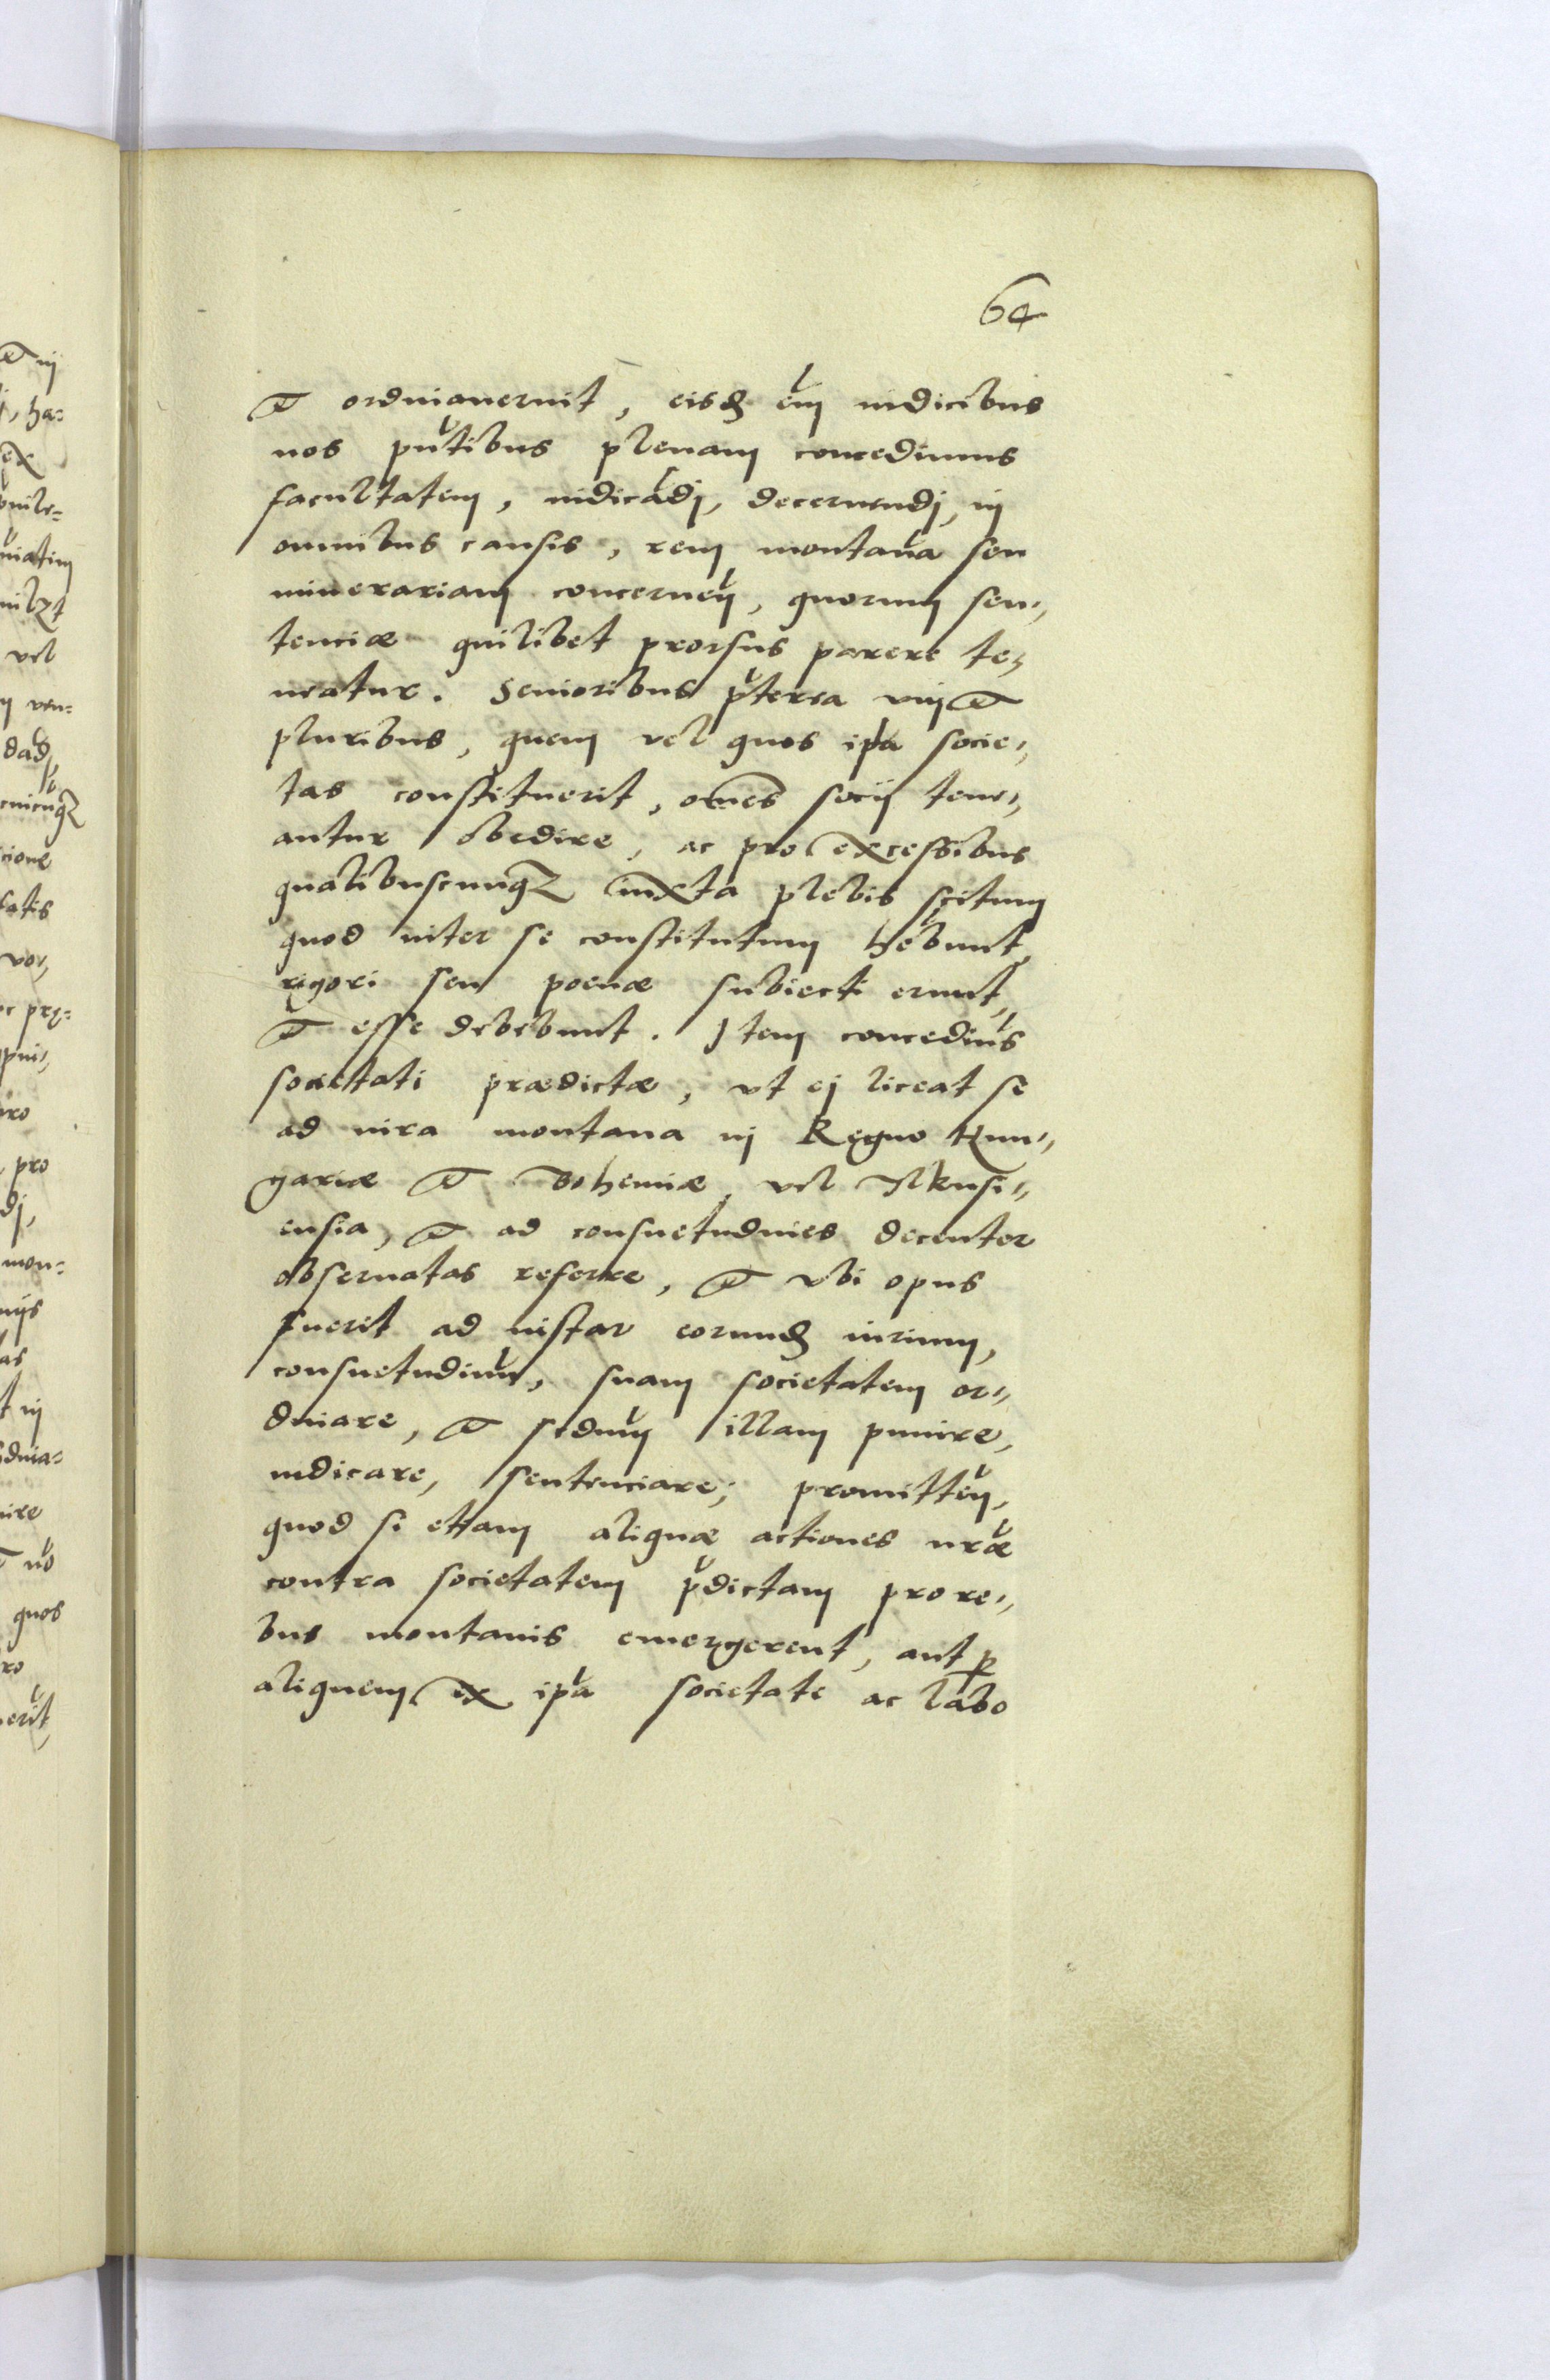 64
et ordinaverint, eisdem eni iudicibus
nos pntibus plenam concedimus
facultatem, iudicādj, decernendj, in
omnibus causis, rem montana seu
minerariam concernen, quorum sen„
tenciæ quilibet prorsus parere te„
neatur. Senioribus pterea uni et
pluribus, quem vel quos ipa socie„
tas constituerit, omes socij tene„
antur obedire, ac pro excessibus
qualibuscunqz iuxta plebis scitum
quod inter se constitutum hebunt
rigori seu poenæ subiecti erunt,
et esse debebunt. Item concedius
societati prædictæ, vt ej liceat se
ad iura montana in Regno Hun„
gariæ et Bohemiæ, vel Ilkusi„
ensia, et ad consuetudines decenter
obseruatas referre, et vbi opus
fuerit ad instar eorumd iurium,
consuetudinu, suam societatem or„
dinare, et secdum illam punire,
iudicare, sentenciare; promitten,
quod si etiam aliquæ actiones nræ
contra societatem pdictam pro re„
bus montanis emergerent, aut p
aliquem ex ipa societate ac labo